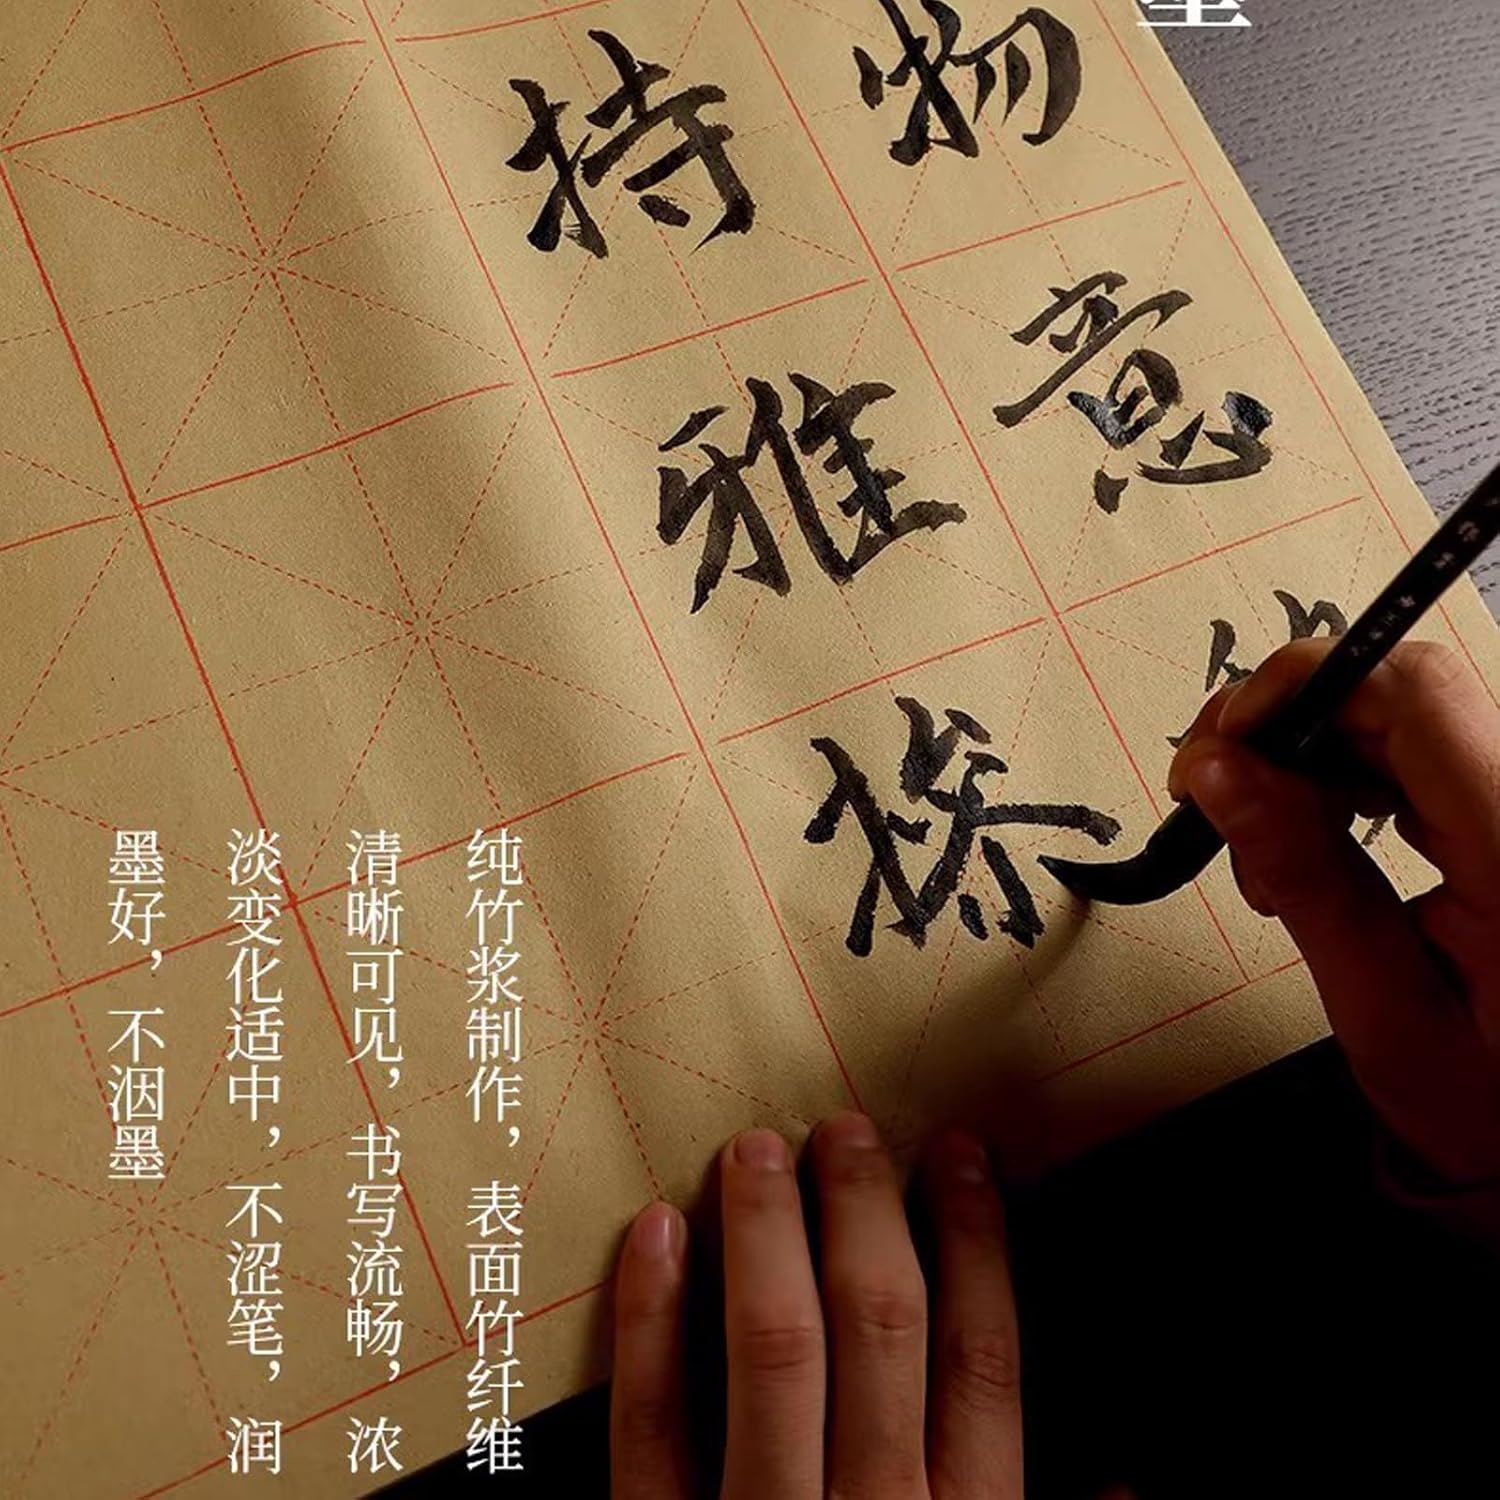 墨
物意
持雅操
纯竹浆制作，表面竹纤维
清晰可见，书写流畅，浓
淡变化适中，不涩笔，润
墨好，不洇墨